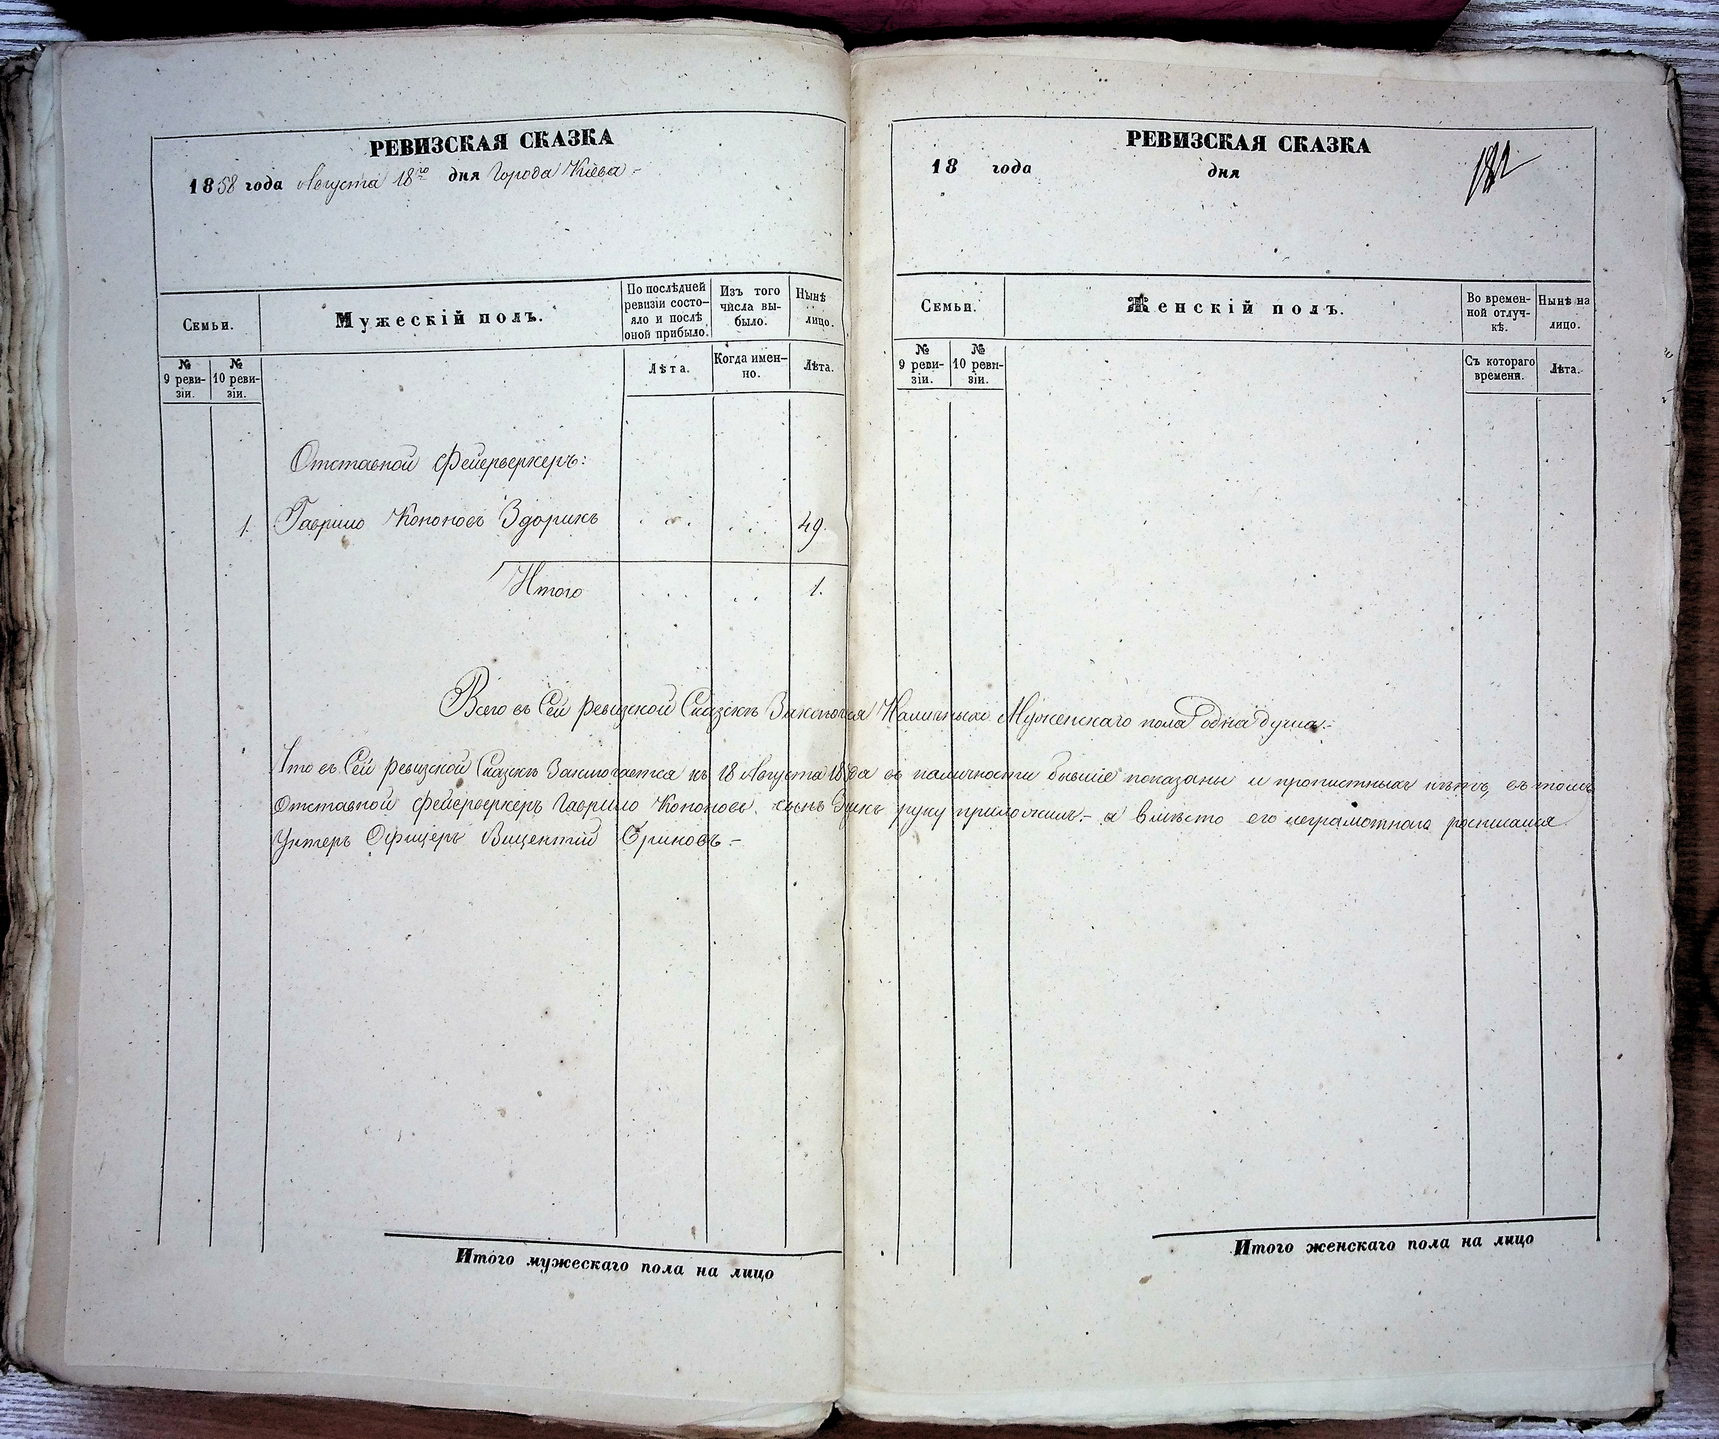 РЕВИЗСКАЯ СКАЗКА
1858 года Августа 18го дня Города Кіева
Семьи.
Мужескій полъ.
По послѣдней ревизіи состояло и послѣ оной прибыло.
Изъ того числа выбыло.
Нынѣ лицо.
№ 9 ревизіи.
№ 10 ревизіи.
Лѣта.
Когда именно.
Лѣта.
Отставной фейерверкеръ:
1. Гаврило Кононовъ Здорикъ 49.
Итого 1.
Итого мужескаго пола на лицо
РЕВИЗСКАЯ СКАЗКА
18 года дня
182
Семьи.
Женскій полъ.
Во временной отлучкѣ.
Нынѣ на лицо.
№ 9 ревизіи.
№ 10 ревизіи.
Съ котораго времени.
Лѣта.
Всего въ Сей ревизской Сказкѣ Наличныхъ Мужескаго пола одна душа.
Что въ Сей ревизской Сказкѣ къ 18 Августа въ наличности бывшіе показаны и прописныхъ нѣтъ, въ томъ
Отставной фейерверкеръ Гаврило Кононовъ сынъ руку приложилъ. а вмѣсто его неграмотнаго росписался
Унтеръ Офицеръ Вицентий
Итого женскаго пола на лицо